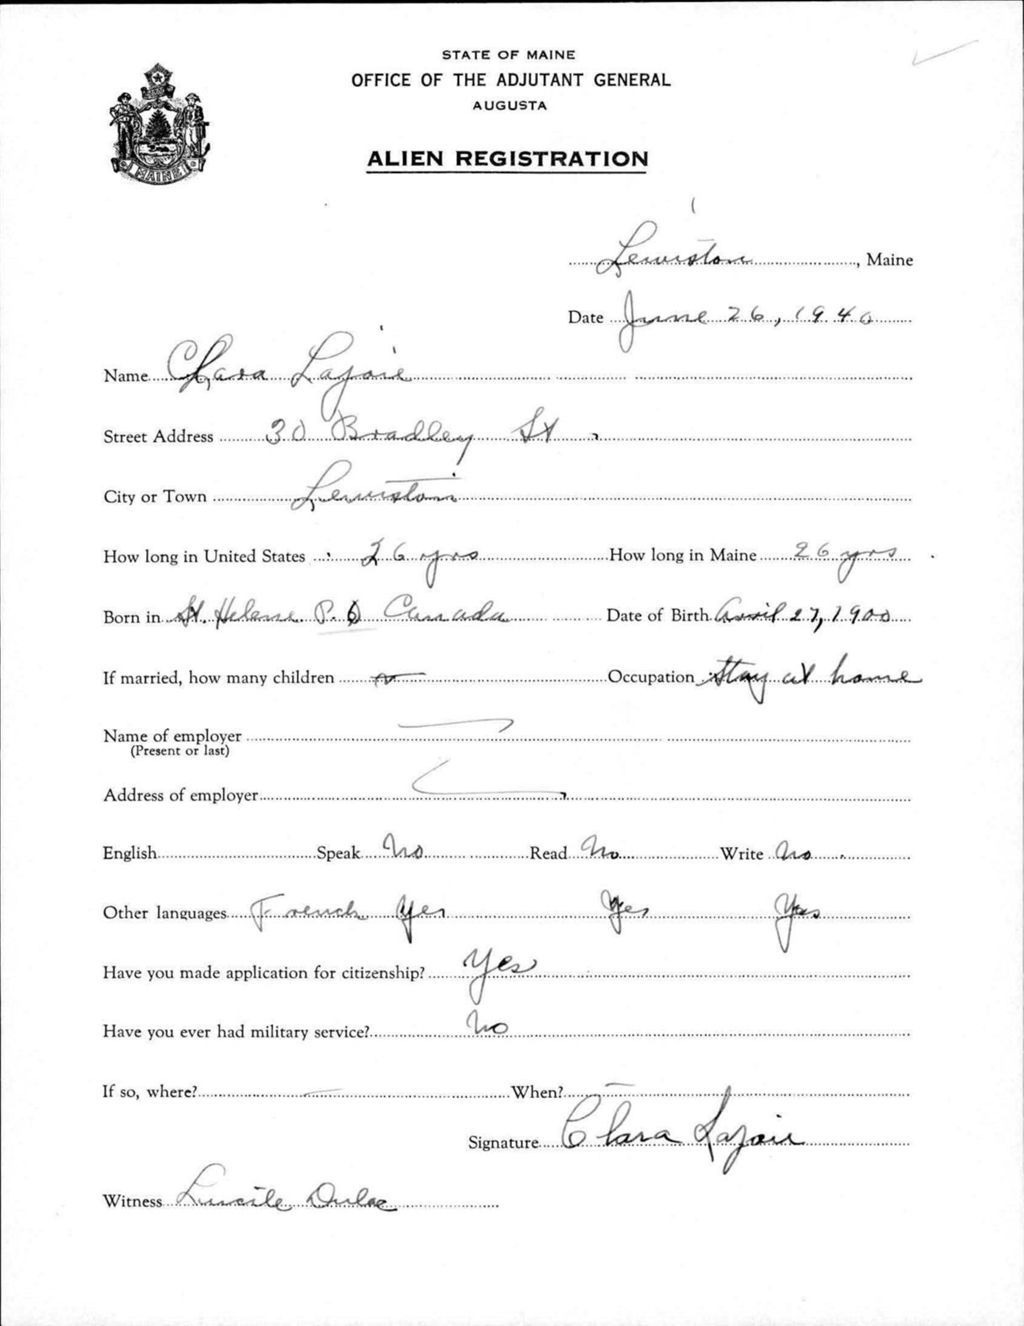 STATE OF MAINE
OFFICE OF THE ADJUTANT GENERAL
AUGUSTA
MAINE
ALIEN REGISTRATION
Lewiston, Maine
Date June 26, 1940
Name Clara Lajoie
Street Address 30 Bradley St
City or Town Lewiston
How long in United States 26 yrs How long in Maine 26 yrs
Born in St. Helene P.Q Canada Date of Birth April 27, 1900
If married, how many children Occupation Stay at home
Name of employer
(Present or last)
Address of employer
English Speak No Read No Write No
Other languages French Yes Yes Yes
Have you made application for citizenship? Yes
Have you ever had military service? No
If so, where? When?
Signature Clara Lajoie
Witness Lucile Dulac